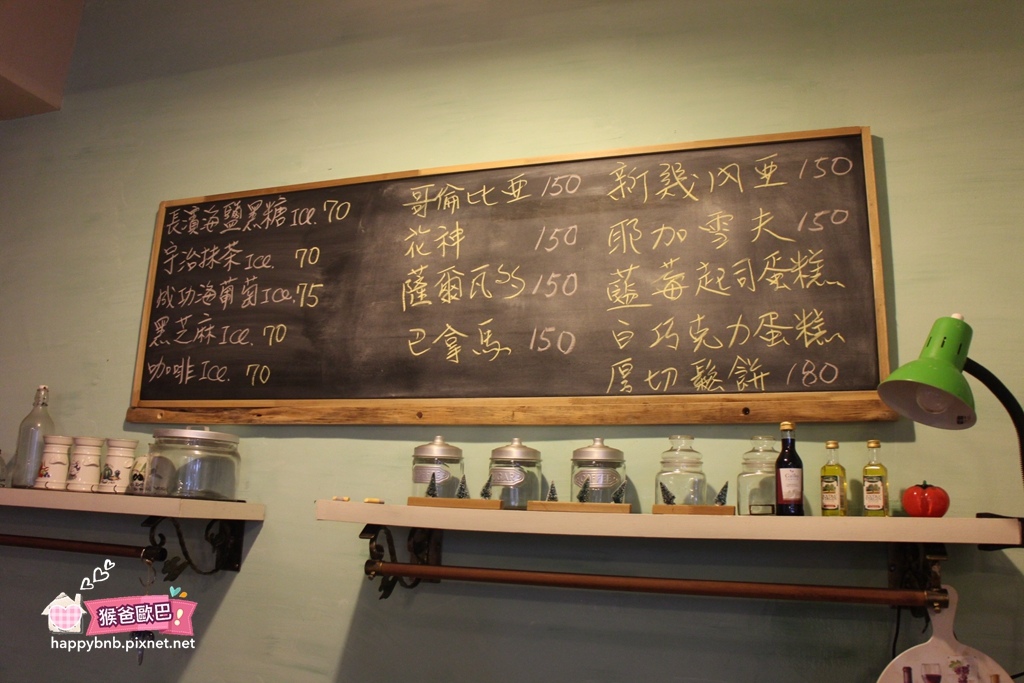 長濱海鹽黑糖Ice. 70
宇治抹茶Ice. 70
成功海葡萄Ice. 75
黑芝麻Ice. 70
咖啡Ice. 70
哥倫比亞 150
花神 150
薩爾瓦SS 150
巴拿馬 150
新幾內亞 150
耶加雪夫 150
藍莓起司蛋糕
白巧克力蛋糕
厚切鬆餅 180
猴爸歐巴!
happybnb.pixnet.net